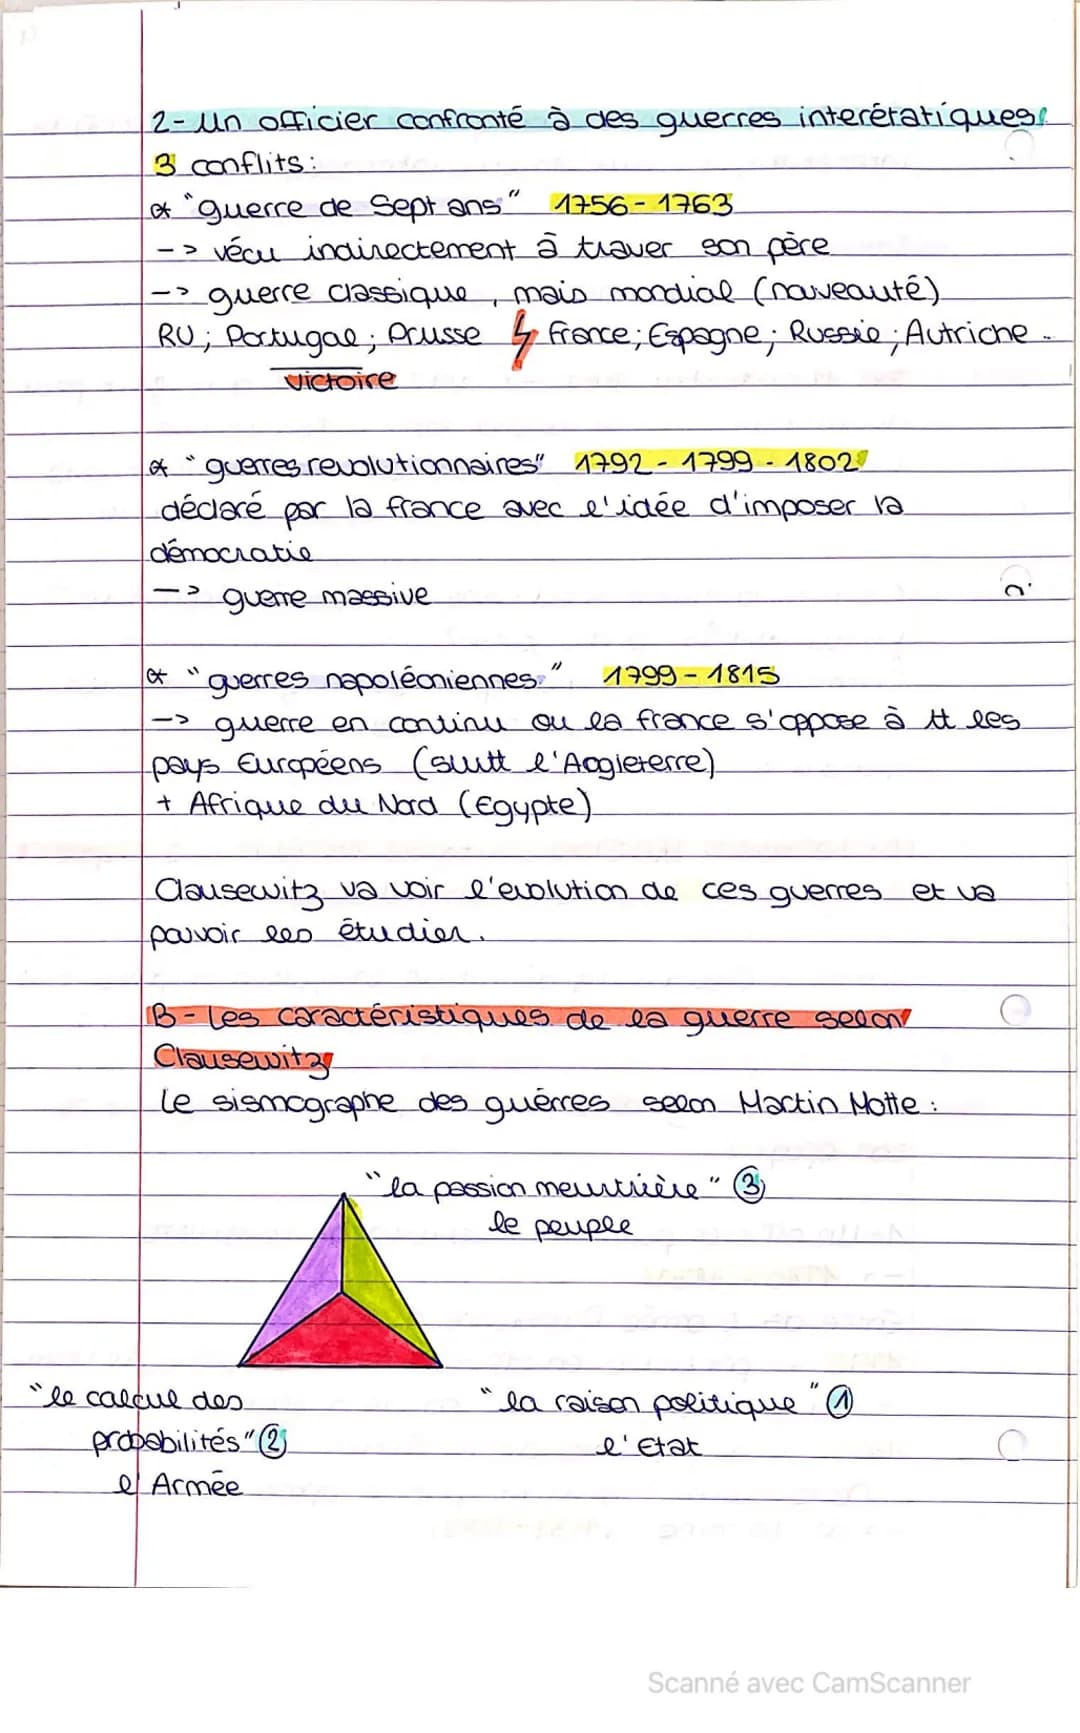 2- Un officier confronté à des guerres interétatiques
3 conflits:
* "guerre de Sept ans" 1756 - 1763
-> vécu indirectement à traver son père
-> guerre classique, mais mondial (nouveauté)
RU; Portugal; Prusse ϟ France; Espagne; Russie; Autriche.
victoire
* "guerres revolutionnaires" 1792 - 1799 - 1802
déclaré par la france avec l'idée d'imposer la
démocratie
-> guerre massive
* "guerres napoléoniennes" 1799 - 1815
-> guerre en continu ou la france s'oppose à tt les
pays Européens (surtt l'Angleterre)
+ Afrique du Nord (Egypte)
Clausewitz va voir l'evolution de ces guerres et va
pouvoir les étudier.
B- Les caractéristiques de la guerre selon
Clausewitz
Le sismographe des guerres selon Martin Motte:
"la passion meurtrière" ③
le peuple
"le calcul des
probabilités" ②
l'Armée
"la raison politique" ①
l'Etat
Scanné avec CamScanner